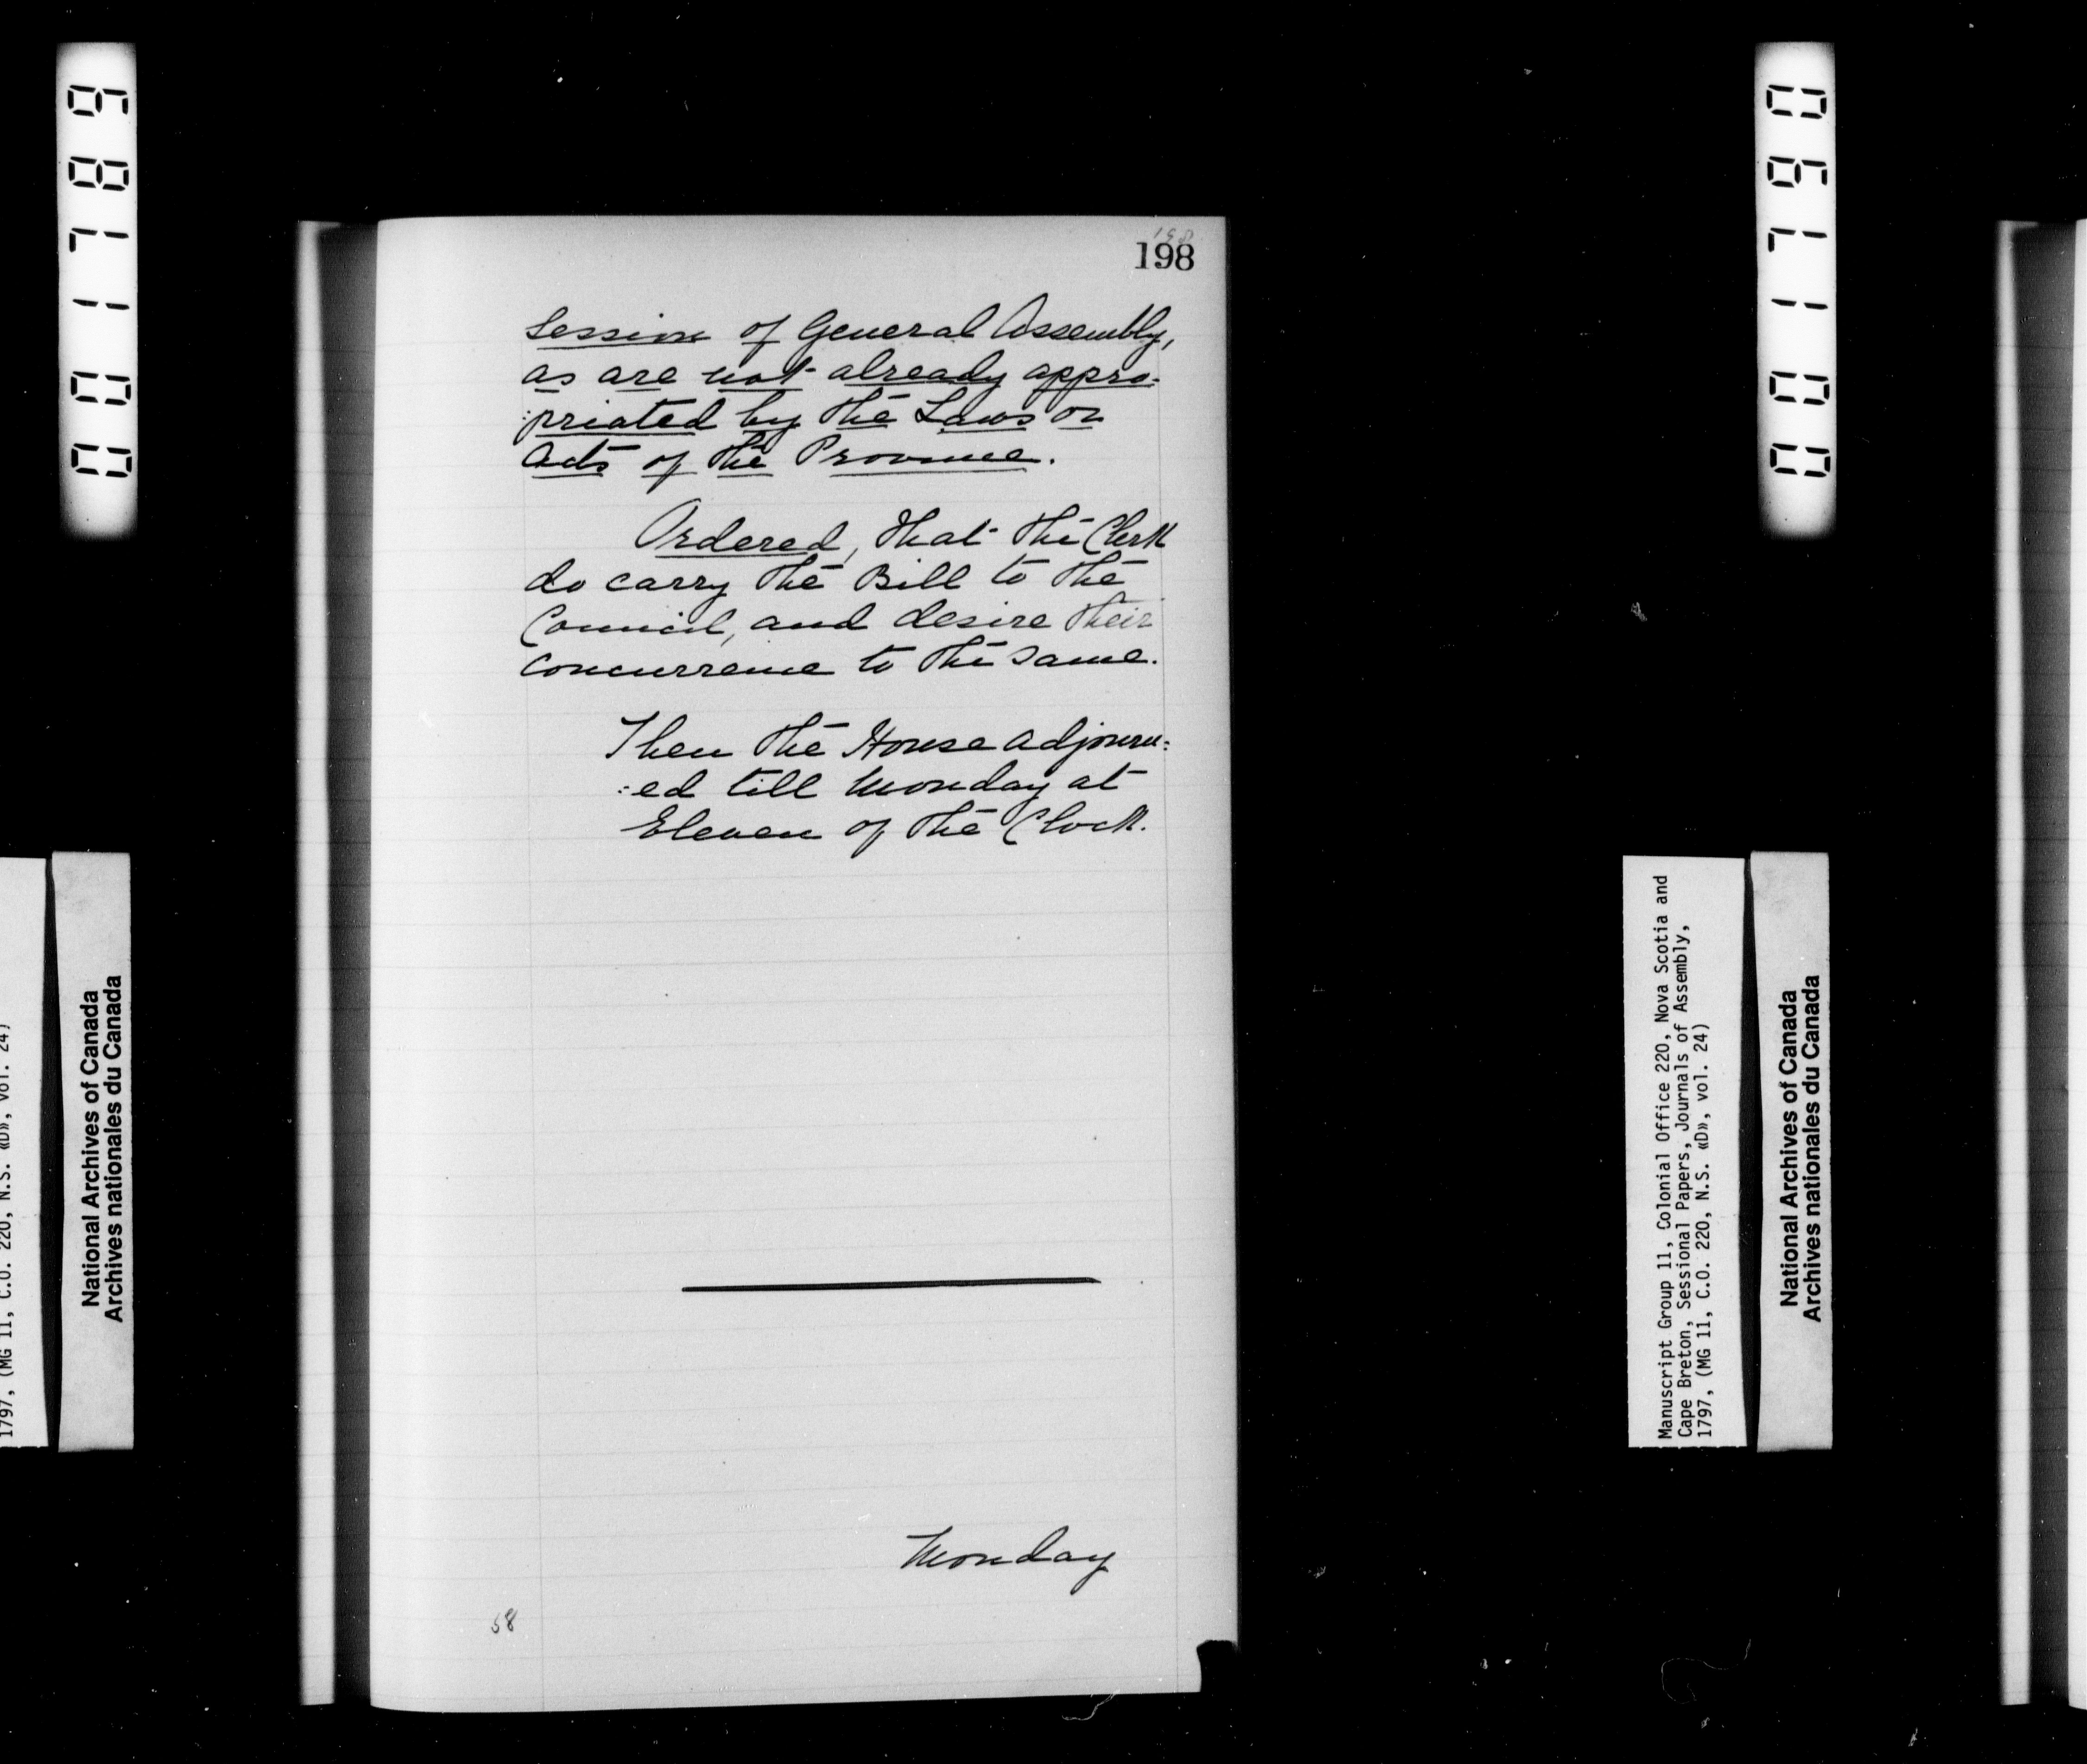 001789
National Archives of Canada
Archives nationales du Canada
1797, (MG 11, C.O. 220, N.S. «D», vol. 24)
198
198
Session of General Assembly,
as are not already appro-
:priated by the Laws or
Acts of the Province.
Ordered, that the Clerk
do carry the Bill to the
Council, and desire their
concurrence to the same.
Then the House adjourn:
:ed till Monday at
Eleven of the Clock.
Monday
58
001790
Manuscript Group 11, Colonial Office 220, Nova Scotia and
Cape Breton, Sessional Papers, Journals of Assembly,
1797, (MG 11, C.O. 220, N.S. «D», vol. 24)
National Archives of Canada
Archives nationales du Canada